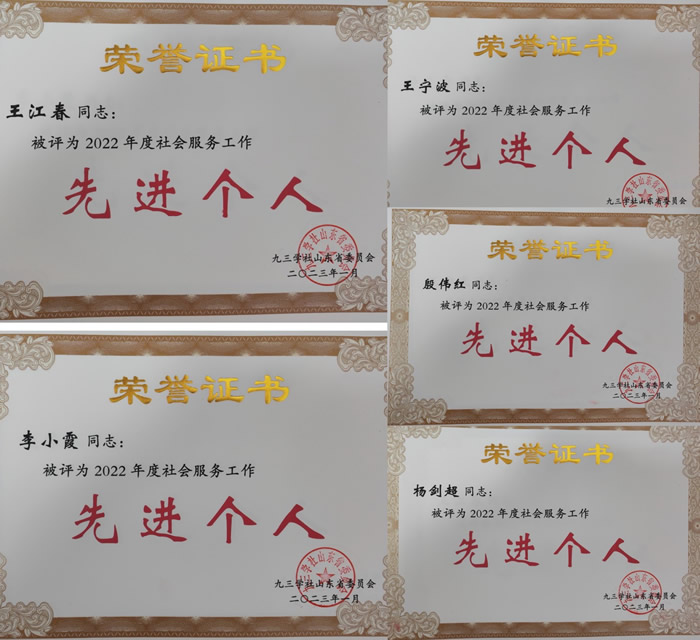 荣誉证书
王江春 同志：
被评为 2022 年度社会服务工作
先进个人
九三学社山东省委员会
二〇二三年一月
荣誉证书
李小霞 同志：
被评为 2022 年度社会服务工作
先进个人
九三学社山东省委员会
二〇二三年一月
荣誉证书
王宁波 同志：
被评为 2022 年度社会服务工作
先进个人
九三学社山东省委员会
荣誉证书
殷伟红 同志：
被评为 2022 年度社会服务工作
先进个人
九三学社山东省委员会
二〇二三年一月
荣誉证书
杨剑超 同志：
被评为 2022 年度社会服务工作
先进个人
九三学社山东省委员会
二〇二三年一月